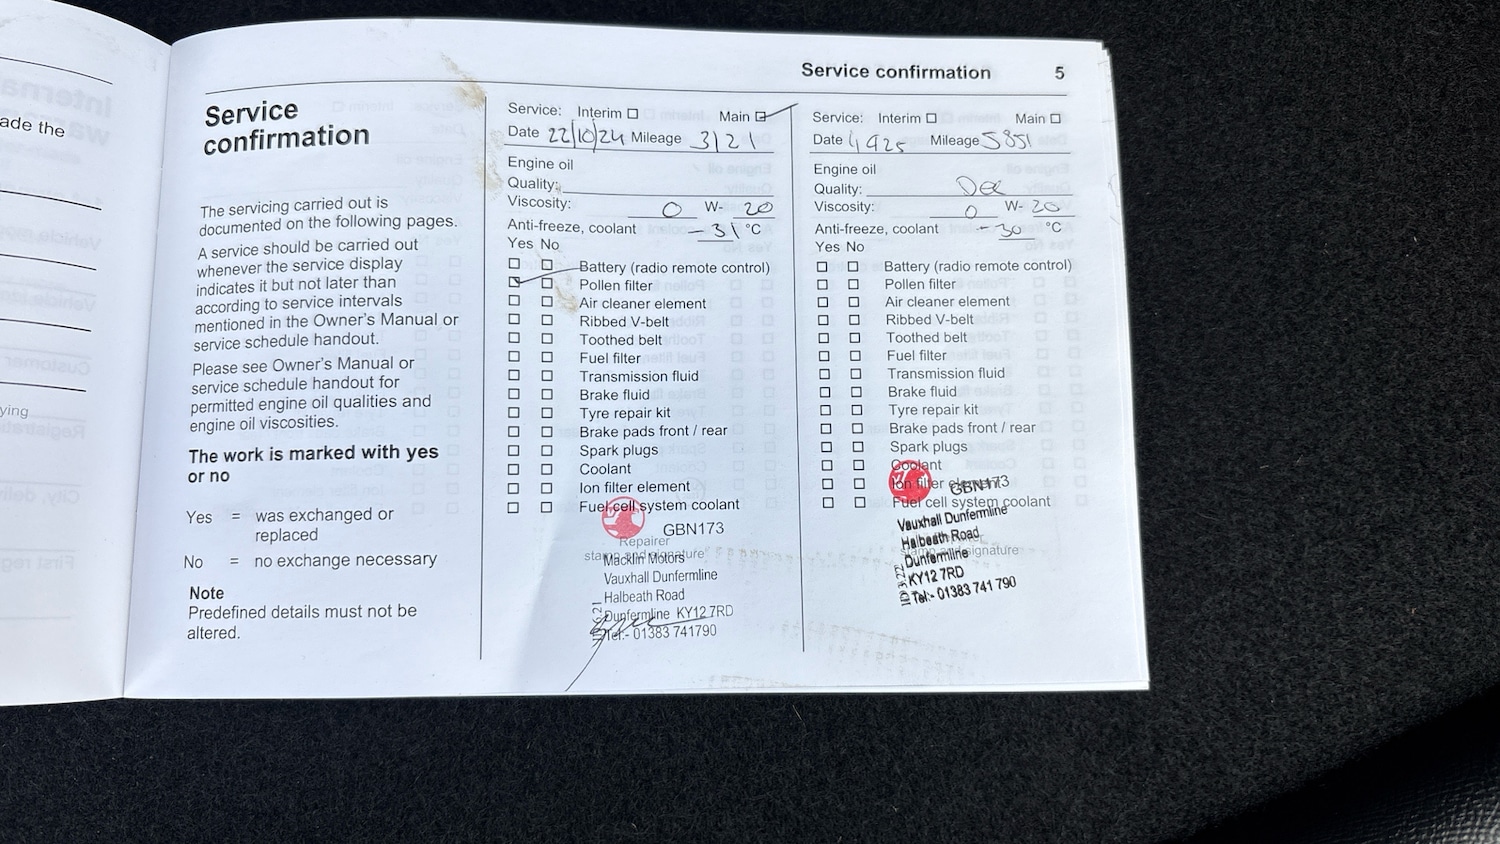 ade the
ying
Service confirmation 5
Service
confirmation
The servicing carried out is
documented on the following pages.
A service should be carried out
whenever the service display
indicates it but not later than
according to service intervals
mentioned in the Owner's Manual or
service schedule handout.
Please see Owner's Manual or
service schedule handout for
permitted engine oil qualities and
engine oil viscosities.
The work is marked with yes
or no
Yes = was exchanged or
replaced
No = no exchange necessary
Note
Predefined details must not be
altered.
Service: Interim Main
Date 22/10/24 Mileage 3121
Engine oil
Quality:
Viscosity: 0 W- 20
Anti-freeze, coolant -31 °C
Yes No
Battery (radio remote control)
Pollen filter
Air cleaner element
Ribbed V-belt
Toothed belt
Fuel filter
Transmission fluid
Brake fluid
Tyre repair kit
Brake pads front / rear
Spark plugs
Coolant
Ion filter element
Fuel cell system coolant
GBN173
Repairer
stamp and signature
Macklin Motors
Vauxhall Dunfermline
Halbeath Road
Dunfermline KY12 7RD
Tel:- 01383 741790
Service: Interim Main
Date 4 9 25 Mileage 5851
Engine oil
Quality:
Viscosity: 0 W- 20
Anti-freeze, coolant -30 °C
Yes No
Battery (radio remote control)
Pollen filter
Air cleaner element
Ribbed V-belt
Toothed belt
Fuel filter
Transmission fluid
Brake fluid
Tyre repair kit
Brake pads front / rear
Spark plugs
Coolant
Ion filter element
GBN173
Fuel cell system coolant
Vauxhall Dunfermline
Halbeath Road
stamp and signature
Dunfermline
KY12 7RD
Tel:- 01383 741 790